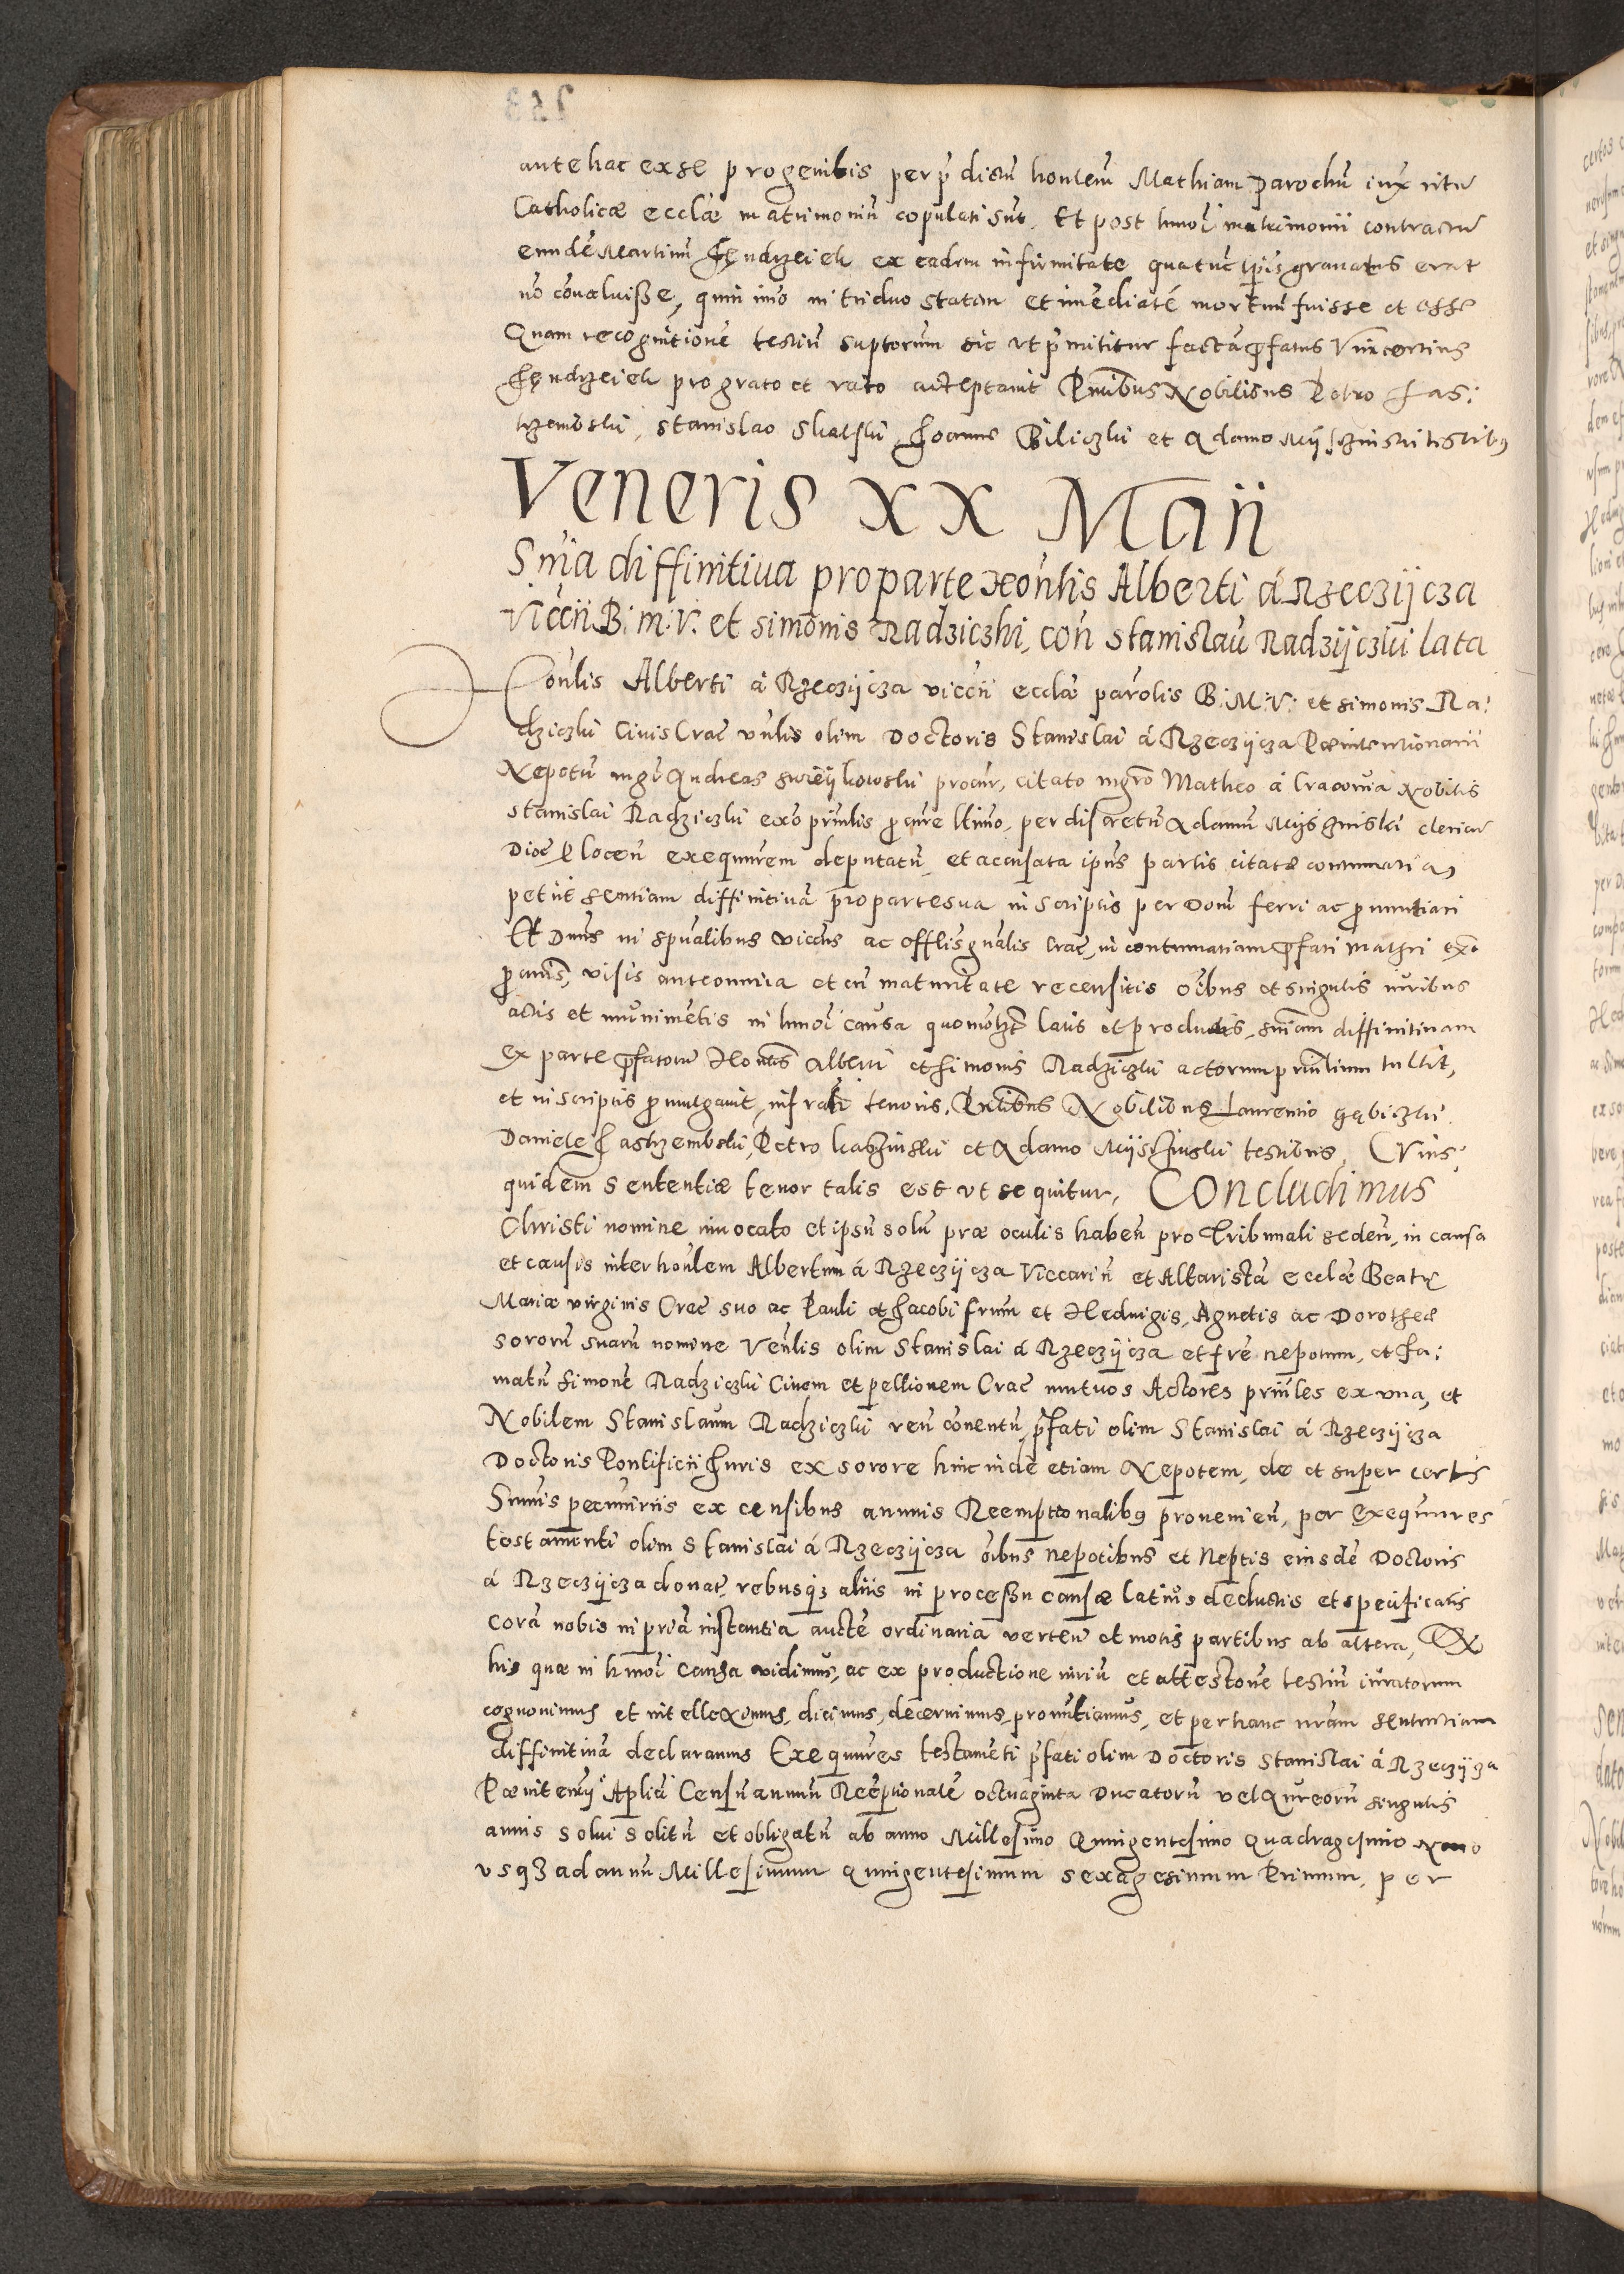 ante hac ex se progenitis per p̄dictū honlem̄ Mathiam Parochū iux̄ ritū
Catholicæ ecclæ matrimoniū copulati sūt. Et post hmōi matrimonii contractū
eundē Martinū Jędrzeiek ex eadem infirmitate qua tūc ip̄is gravatus erat
nō cōvaluisse, quin imo in triduo statim et imēdiatē mortuū fuisse et esse
Quam recognitionē testiū suptorum sic ut p̄mititur factā p̄fatus Vincentius
Jędrzeiek pro grato et rato acceptavit Pn̄tibus Nobilibus Petro Jas:
trzembski, Stanislao Skarski, Joanne Biliczki et Adamo Mijszinski testibus
Veneris XX Maij
Sn̄ia diffinitiua pro parte Honlis Alberti á Rzeczijcza
Viccii B. M. V. et Simonis Radziczki, con̄ Stanislaū Radzijczki lata
Honlis Alberti á Rzeczijcza viccii ecclæ parolis B. M. V. et Simonis Ra:
dziczki Civis Crac̄ vn̄lis olim Doctoris Stanislai á Rzeczijcza Pœnitentionarii
Nepotū mgr̄ Andreas procur, citato mgrō Matheo á Cracovia Nobilis
Stanislai Radziczki ex̄o prin̄lis p̄cur̄e ltimo, per discretū Adamū Mijszinski clericū
Dioc̄ Plocen̄ exequut̄rem deputatū, et accusata ip̄ius partis citatæ contumacia
petiit sententiam diffinitivā pro parte sua in scriptis per Dom̄ ferri ac p̄nuntiari
Et Dn̄us in sp̄ualibus vicc̄ius ac offlis gn̄alis Crac̄, in contumatiam p̄fati Mathei ex̄o
p̄curis, visis ante omnia et cū maturitate recensitis oībus et singulis iuribus
actis et munimētis in hmōi causa quomōlzt latis et productis, sn̄iam diffinitivam
ex parte p̄fatorū Honlis Alberti et Simonis Radziczki actorum prin̄lium tullit,
et in scriptis p̄mulgavit, infrasc̄ti tenoris. Pn̄tibus Nobilibus Laurentio Gębiczki
Daniele Jastrzembski, Petro et Adamo Mijszinski testibus. Cuius:
quidem Sententiæ tenor talis est ut sequitur. Concludimus
Christi nomine invocato et ipsū solū præ oculis haben̄ pro Tribunali seden̄, in causa
et causis inter honlem Albertum á Rzeczijcza Viccariū et Altaristā ecclæ Beatæ
Mariæ virginis Crac̄ suo ac Pauli et Jacobi frum̄ et Hedvigis, Agnetis ac Dorotheæ
sororū suarū nomine Ven̄lis olim Stanislai á Rzeczijcza et frē nepotum, et fa:
matū Simonē Radziczki Civem et pellionem Crac̄ mutuos Actores prin̄les ex una, et
Nobilem Stanislaum Radziczki reū cōventū, p̄fati olim Stanislai á Rzeczijcza
Doctoris Pontificii Juris ex sorore hinc inde etiam Nepotem, de et super certis
Summis pecuniriis ex censibus annuis Reemptionalibus provenien̄, per Exequutres
testamenti olim Stanislai á Rzeczijcza oībus nepotibus et Neptis eiusdē Doctoris
á Rzeczijcza donat̄, rebusq3 aliis in processu causæ latius deductis et specificatis
Corā nobis in priā instantia aucte ordinaria verten̄ et motis partibus ab altera, Ex
his quæ in hmōi causa vidimus, ac ex productione iuriū et attestone testiū iuratorum
cognovimus et intelleximus, dicimus, decernimus, pronūtiamus, et per hanc nr̄am sententiam
diffinitivā declaramus Exequutres testamēti p̄fati olim Doctoris Stanislai á Rzeczijcza
Pœnitenrij Aplici Censū annuū Reēptionalē octuaginta Ducatorū vel Aureorū singulis
annis solui solitū et obligatū ab anno Millesimo Quingentesimo Quadragesimo Nono
usq3 ad annū Millesimum Quingentesimum sexagesimum Primum, per